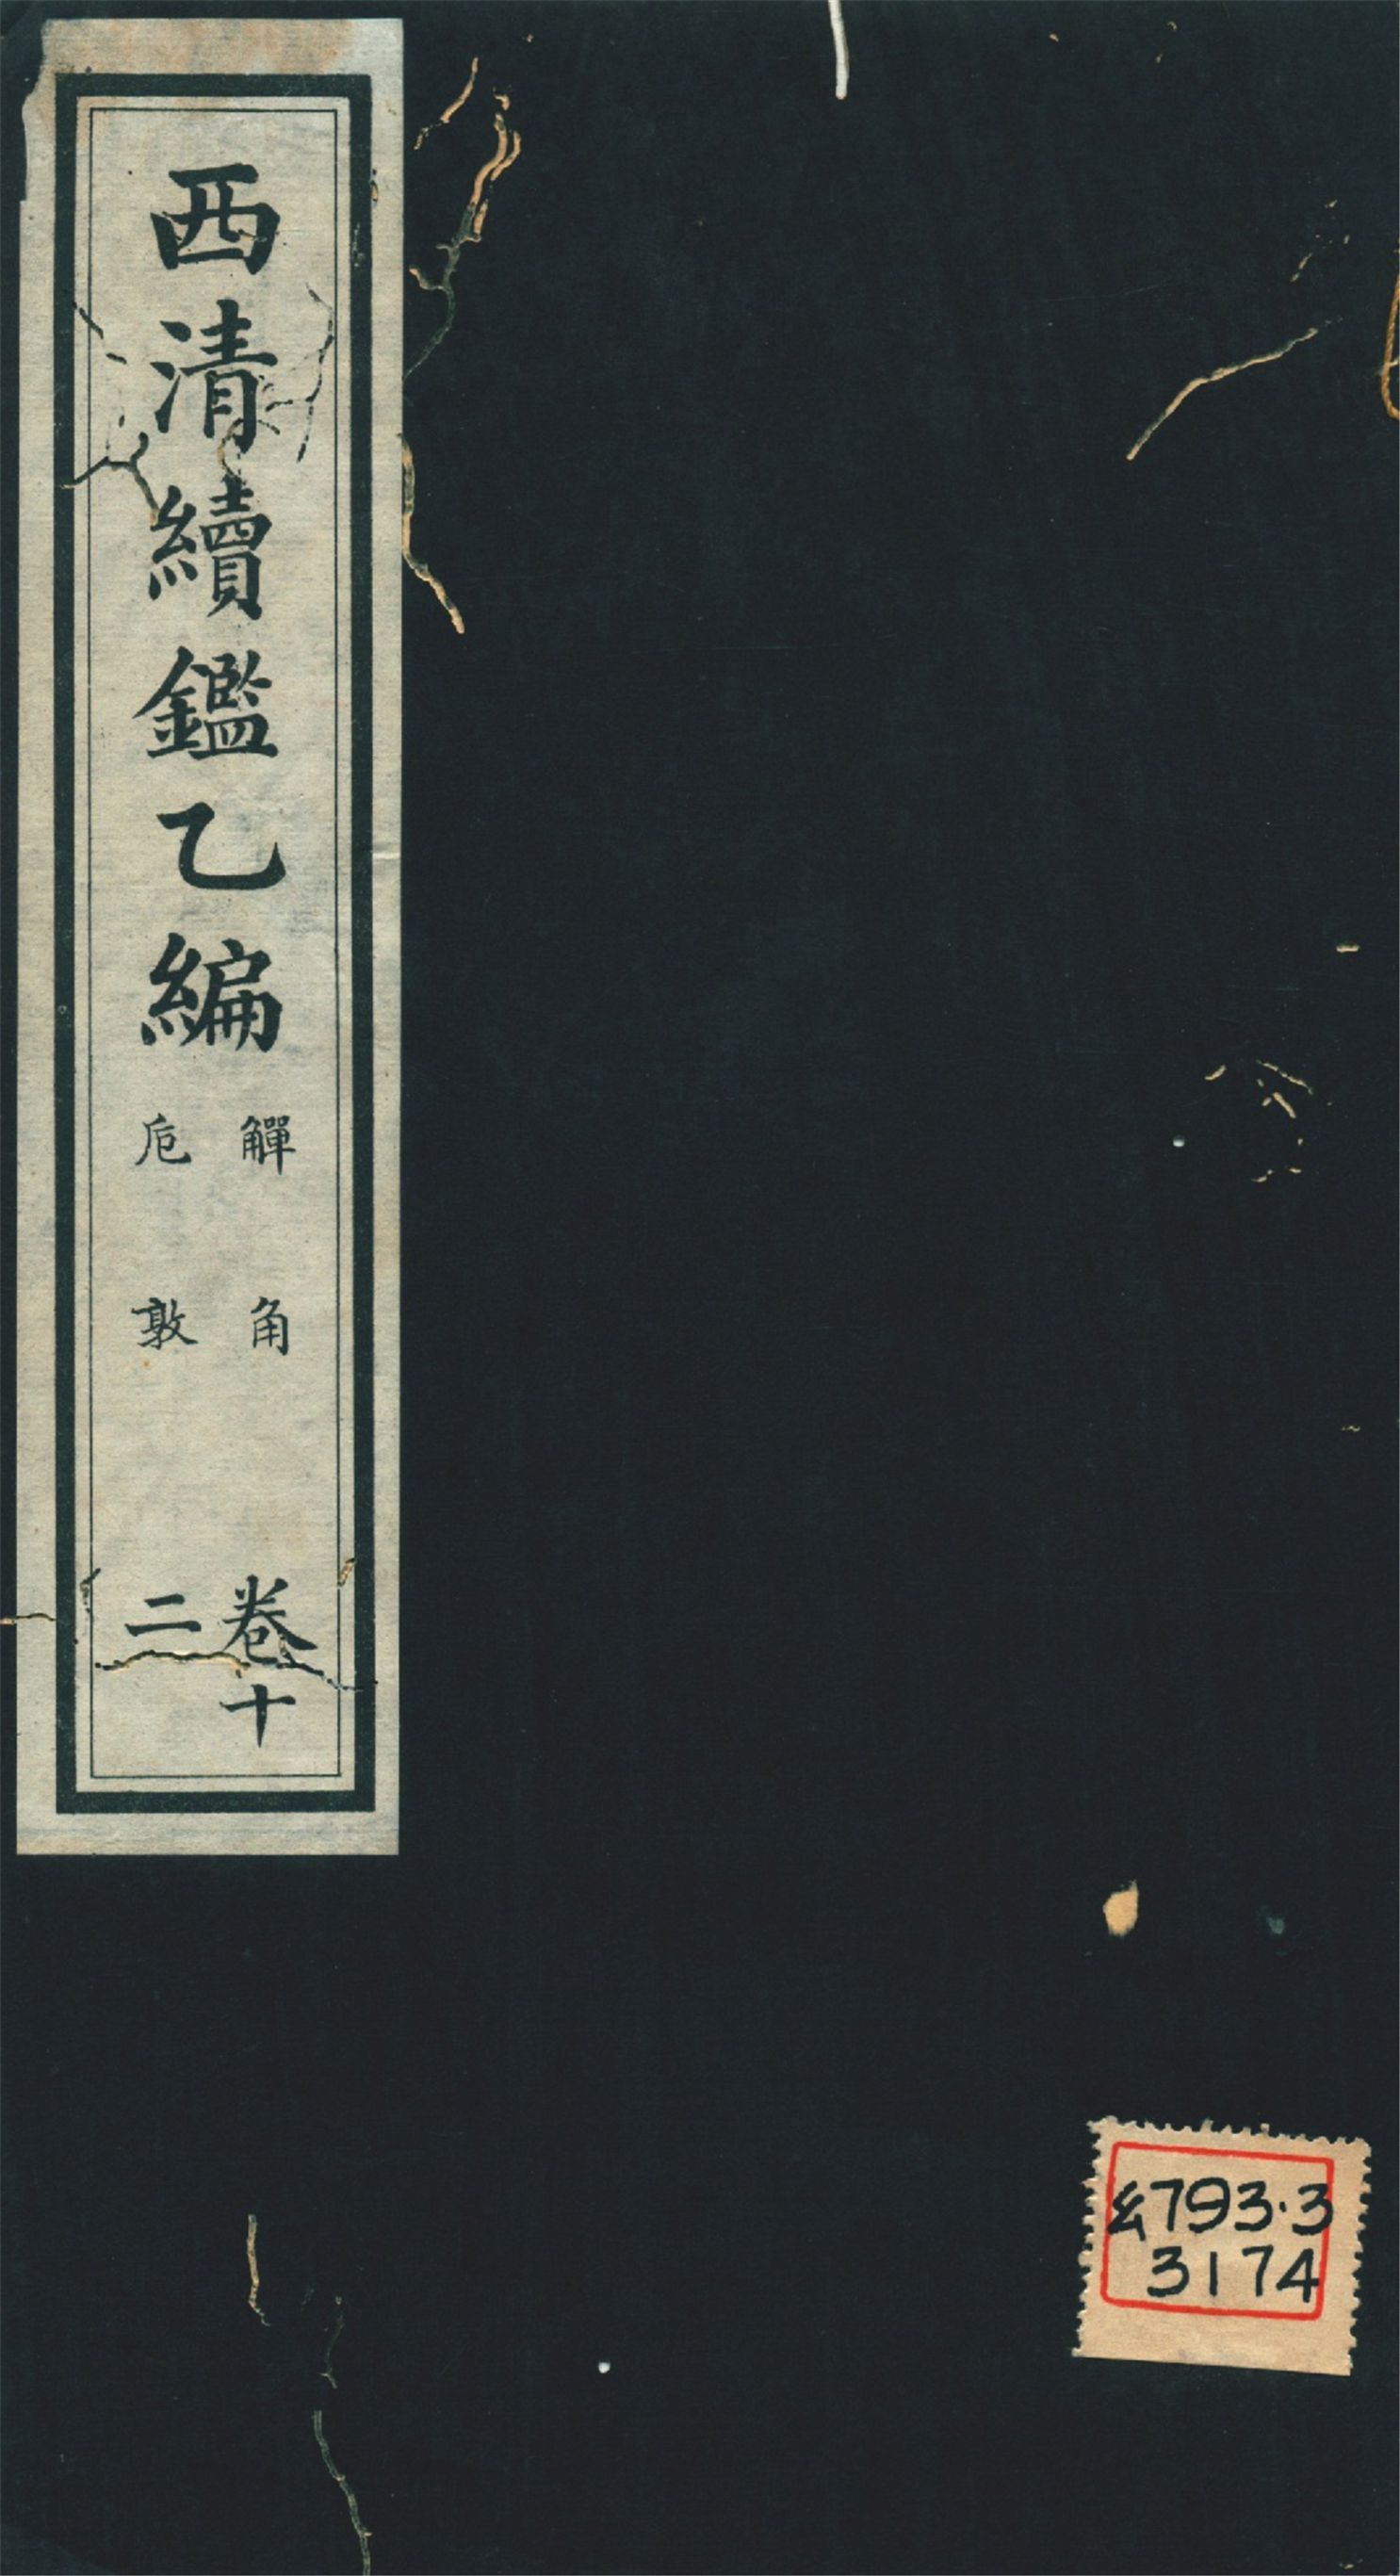 西清續鑑乙編
觶 角
卮 敦
卷十
二
793.3
3174